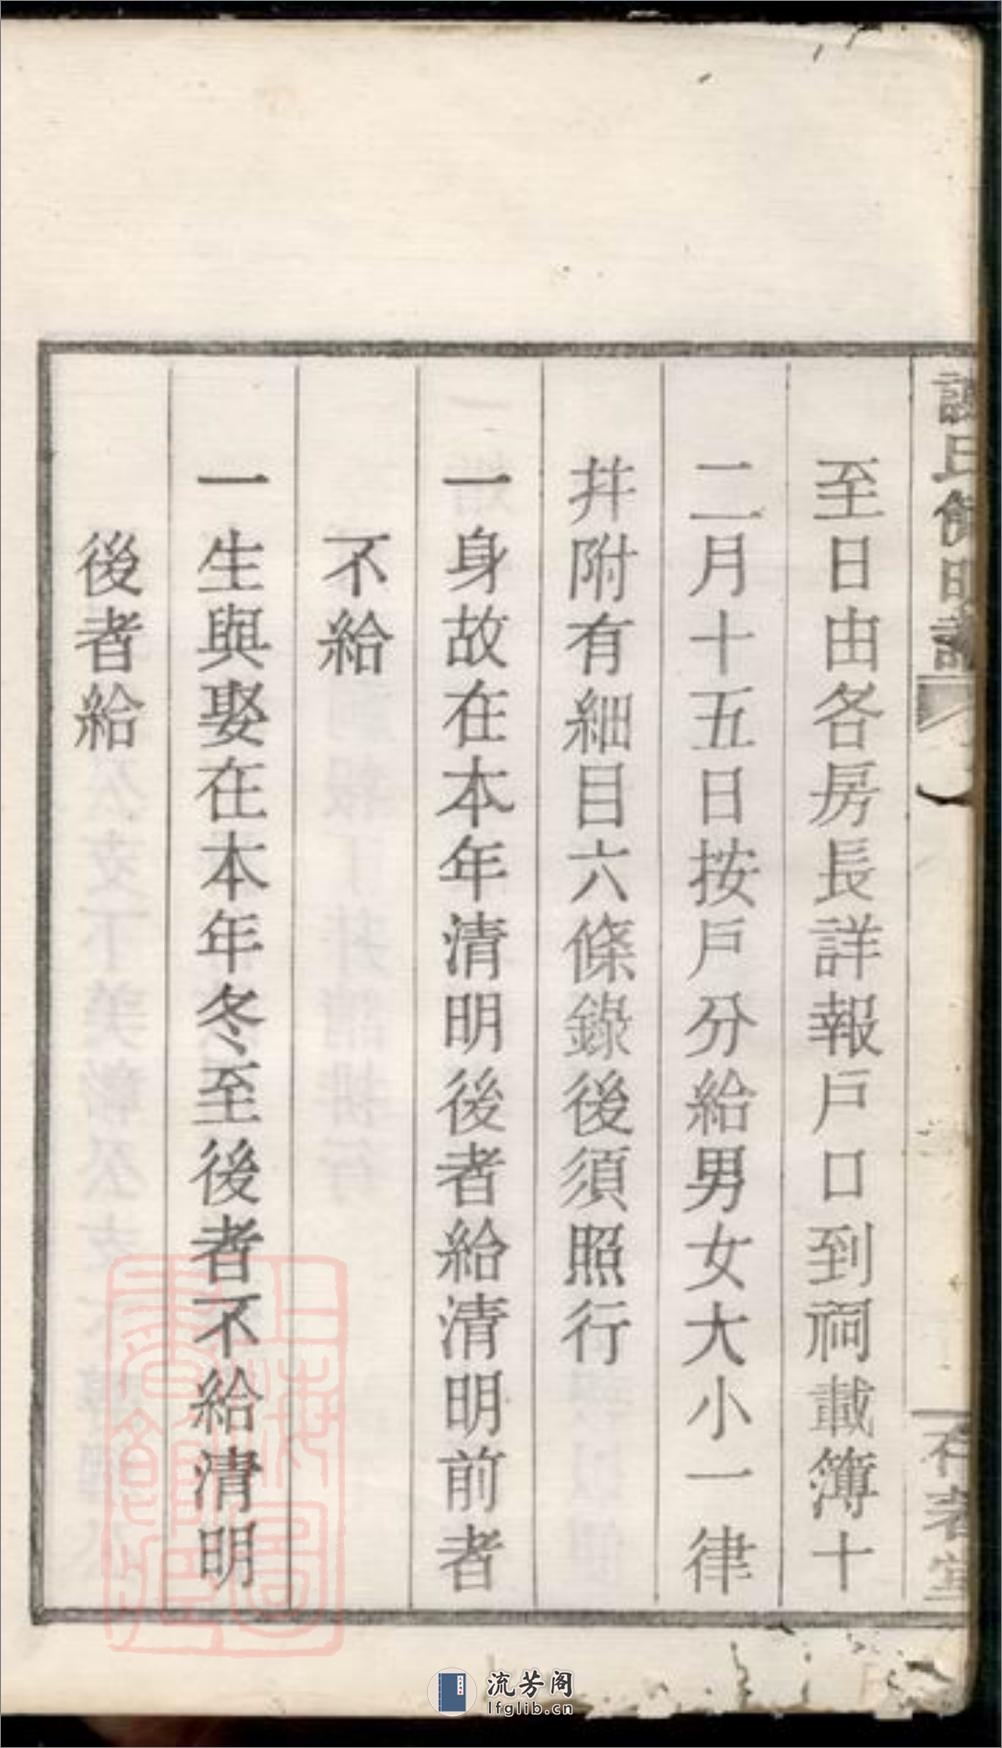 至日由各房長詳報戸口到祠載簿十
二月十五日按戸分給男女大小一律
幷附有細目六條錄後須照行
一身故在本年清明後者給清明前者
不給
一生與娶在本年冬至後者不給清明
後者給
上海圖書館藏
流芳阁
lfglib.cn